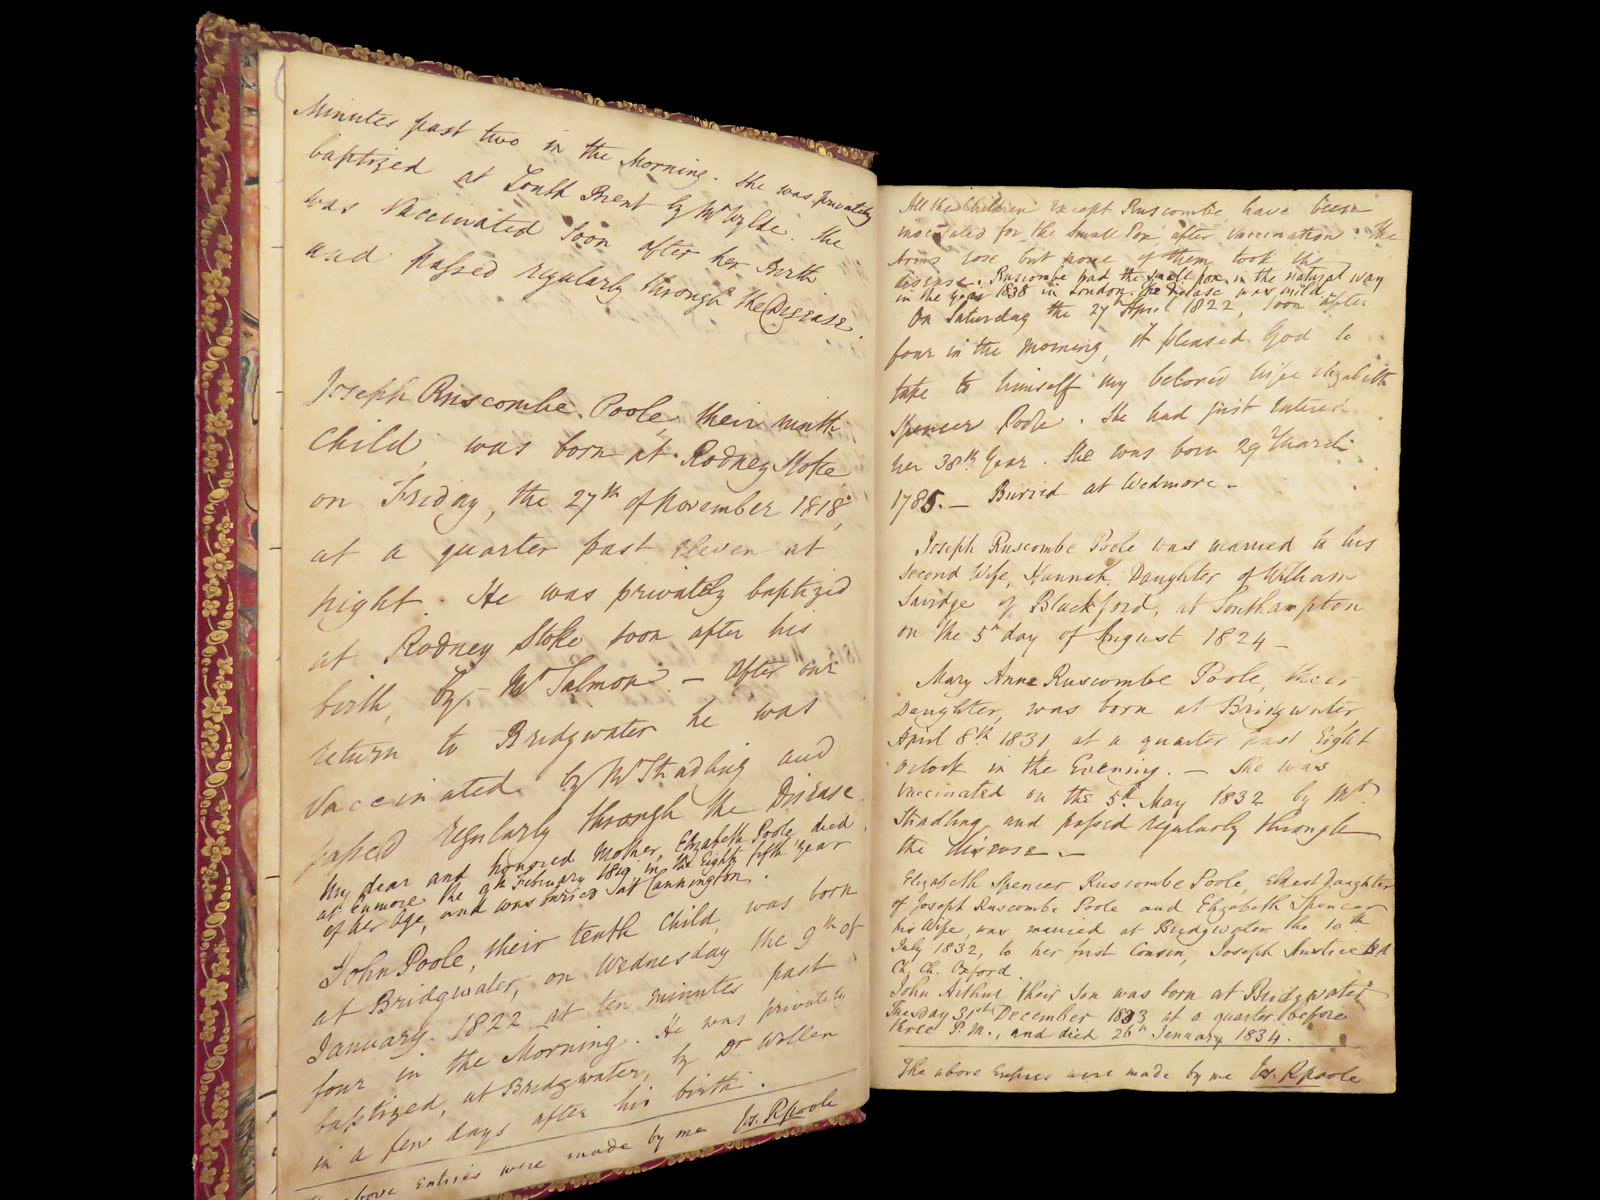 Minutes past two in the Morning. She was privately
baptized at South Brent by Mr Wylde. She
was Vaccinated soon after her Birth
and passed regularly through the Disease.
Joseph Ruscombe Poole, their ninth
Child, was born at Rodney Stoke
on Friday, the 27th of November 1818,
at a quarter past eleven at
night. He was privately baptized
at Rodney Stoke soon after his
birth, by Mr Salmon. – After our
return to Bridgwater he was
Vaccinated by Mr Stradling and
passed regularly through the Disease.
My dear and honored Mother, Elizabeth Poole, died
at Enmore the 9th February 1819 in the Eighty fifth Year
of her Age, and was buried at Cannington.
John Poole, their tenth Child, was born
at Bridgwater, on Wednesday the 9th of
January 1822 at ten minutes past
four in the Morning. He was privately
baptized, at Bridgwater, by Dr Wollen
in a few days after his birth.
above Entries were made by me Jos. R Poole
All the Children except Ruscombe have been
inoculated for the Small Pox, after vaccination. The
Arms rose but none of them took the
disease. Ruscombe had the small pox in the natural way
in the year 1838 in London, the disease was mild.
On Saturday the 27th April 1822, soon after
four in the Morning, it pleased God to
take to himself my beloved wife Elizabeth
Spencer Poole. She had just entered
her 38th Year. She was born 29 March
1785. – Buried at Wedmore –
Joseph Ruscombe Poole was married to his
second Wife, Hannah, Daughter of William
Savidge of Blackford, at Southampton
on the 5th day of August 1824 –
Mary Anne Ruscombe Poole, their
Daughter, was born at Bridgwater,
April 8th 1831 at a quarter past Eight
o'clock in the Evening. – She was
vaccinated on the 5th May 1832 by Mr
Stradling and passed regularly through
the disease. –
Elizabeth Spencer Ruscombe Poole, Eldest Daughter
of Joseph Ruscombe Poole and Elizabeth Spencer
his Wife, was married at Bridgwater the 10th
July 1832, to her first Cousin, Joseph Anstice
Ch. Ch. Oxford.
John Arthur their Son was born at Bridgwater
Tuesday 31st December 1833 at a quarter before
three P.M., and died 26th January 1834.
The above Entries were made by me Jos. R Poole